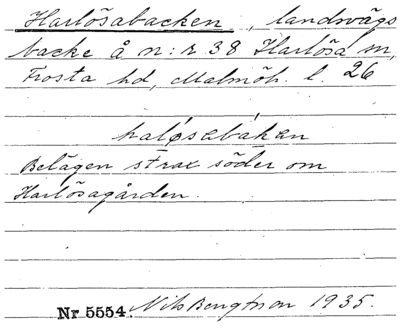 Harlösabacken, landsvägs
backe å n:r 38 Harlösa sn,
Frosta hd, Malmöh. l. 26
haløsabákan
Belägen strax söder om
Harlösagården.
Nr 5554. Nils Bengtson 1935.